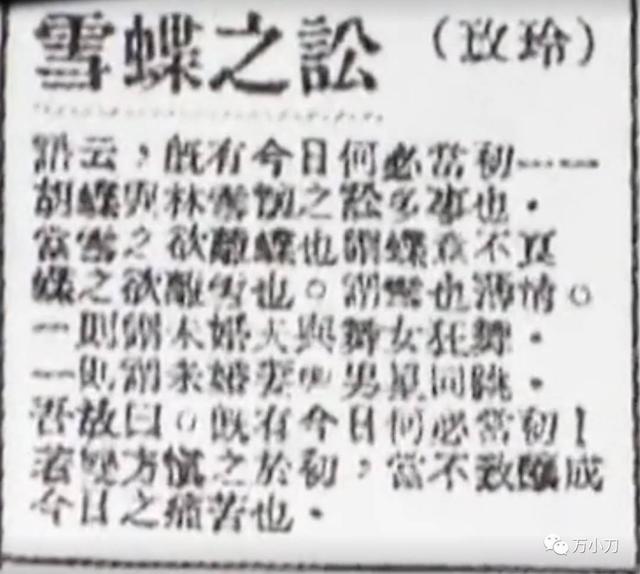 雪蝶之訟 (玫玲)
語云，既有今日何必當初——
胡蝶與林雪懷之訟多事也。
當雪之欲離蝶也謂蝶意不真
蝶之欲離雪也。謂雪也薄情。
一則謂未婚夫與舞女狂舞。
一則謂未婚妻與男星同跳。
吾故曰。既有今日何必當初！
若雙方慎之於初，當不致釀成
今日之痛苦也。
万小刀